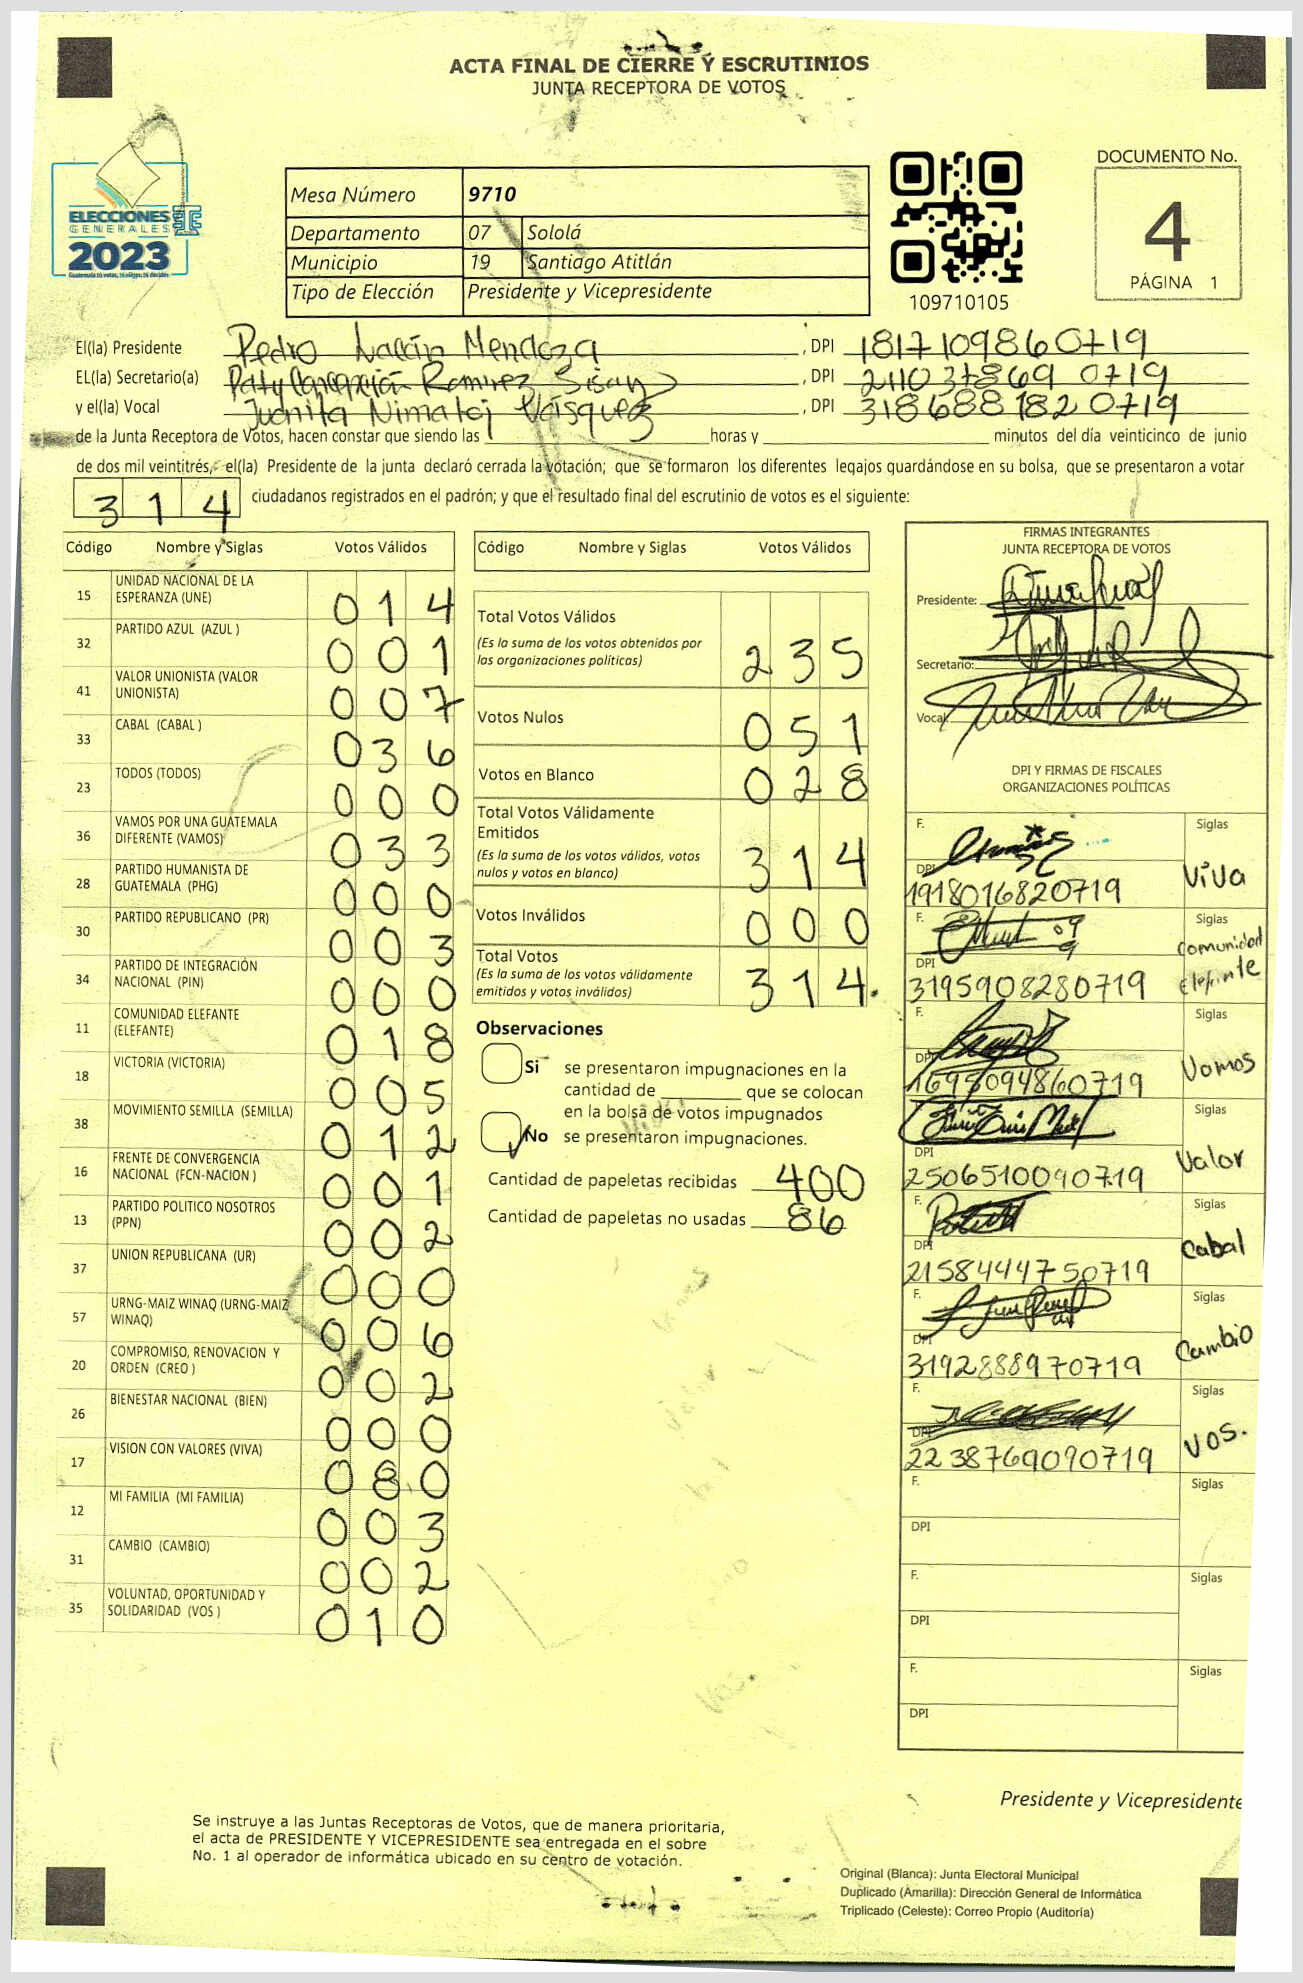 ACTA FINAL DE CIERRE Y ESCRUTINIOS
JUNTA RECEPTORA DE VOTOS
ELECCIONES
GENERALES
2023
Mesa Número 9710
Departamento 07 Sololá
Municipio 19 Santiago Atitlán
Tipo de Elección Presidente y Vicepresidente
109710105
DOCUMENTO No.
4
PÁGINA 1
El(la) Presidente Pedro Mendoza , DPI 1817109860719
EL(la) Secretario(a) Paty Concepción Ramirez Sisay , DPI 211037869 0719
y el(la) Vocal Juanita Nimatuj Vásquez , DPI 318688182 0719
de la Junta Receptora de Votos, hacen constar que siendo las horas y minutos del día veinticinco de junio
de dos mil veintitrés, el(la) Presidente de la junta declaró cerrada la votación; que se formaron los diferentes legajos guardándose en su bolsa, que se presentaron a votar
314 ciudadanos registrados en el padrón; y que el resultado final del escrutinio de votos es el siguiente:
Código Nombre y Siglas Votos Válidos
15 UNIDAD NACIONAL DE LA ESPERANZA (UNE) 014
32 PARTIDO AZUL (AZUL ) 001
41 VALOR UNIONISTA (VALOR UNIONISTA) 007
33 CABAL (CABAL ) 036
23 TODOS (TODOS) 000
36 VAMOS POR UNA GUATEMALA DIFERENTE (VAMOS) 033
28 PARTIDO HUMANISTA DE GUATEMALA (PHG) 000
30 PARTIDO REPUBLICANO (PR) 003
34 PARTIDO DE INTEGRACIÓN NACIONAL (PIN) 000
11 COMUNIDAD ELEFANTE (ELEFANTE) 018
18 VICTORIA (VICTORIA) 005
38 MOVIMIENTO SEMILLA (SEMILLA) 012
16 FRENTE DE CONVERGENCIA NACIONAL (FCN-NACION ) 001
13 PARTIDO POLITICO NOSOTROS (PPN) 002
37 UNION REPUBLICANA (UR) 000
57 URNG-MAIZ WINAQ (URNG-MAIZ WINAQ) 006
20 COMPROMISO, RENOVACION Y ORDEN (CREO ) 002
26 BIENESTAR NACIONAL (BIEN) 000
17 VISION CON VALORES (VIVA) 080
12 MI FAMILIA (MI FAMILIA) 003
31 CAMBIO (CAMBIO) 002
35 VOLUNTAD, OPORTUNIDAD Y SOLIDARIDAD (VOS ) 010
Código Nombre y Siglas Votos Válidos
Total Votos Válidos
(Es la suma de los votos obtenidos por
las organizaciones políticas) 235
Votos Nulos 051
Votos en Blanco 028
Total Votos Válidamente
Emitidos
(Es la suma de los votos válidos, votos
nulos y votos en blanco) 314
Votos Inválidos 000
Total Votos
(Es la suma de los votos válidamente
emitidos y votos inválidos) 314.
Observaciones
Si se presentaron impugnaciones en la
cantidad de que se colocan
en la bolsa de votos impugnados
No se presentaron impugnaciones.
Cantidad de papeletas recibidas 400
Cantidad de papeletas no usadas 86
FIRMAS INTEGRANTES
JUNTA RECEPTORA DE VOTOS
Presidente:
Secretario:
Vocal:
DPI Y FIRMAS DE FISCALES
ORGANIZACIONES POLÍTICAS
F. Siglas
DPI 1918016820719 ViVa
F. Siglas
DPI 3195908280719 Comunidad Elefante
F. Siglas
DPI 1695094860719 Vamos
F. Siglas
DPI 2506510090719 Valor
F. Siglas
DPI 2158444750719 Cabal
F. Siglas
DPI 3192888970719 Cambio
F. Siglas
DPI 2238769090719 VOS.
F. Siglas
DPI
F. Siglas
DPI
F. Siglas
DPI
Presidente y Vicepresidente
Se instruye a las Juntas Receptoras de Votos, que de manera prioritaria,
el acta de PRESIDENTE Y VICEPRESIDENTE sea entregada en el sobre
No. 1 al operador de informática ubicado en su centro de votación.
Original (Blanca): Junta Electoral Municipal
Duplicado (Amarilla): Dirección General de Informática
Triplicado (Celeste): Correo Propio (Auditoría)